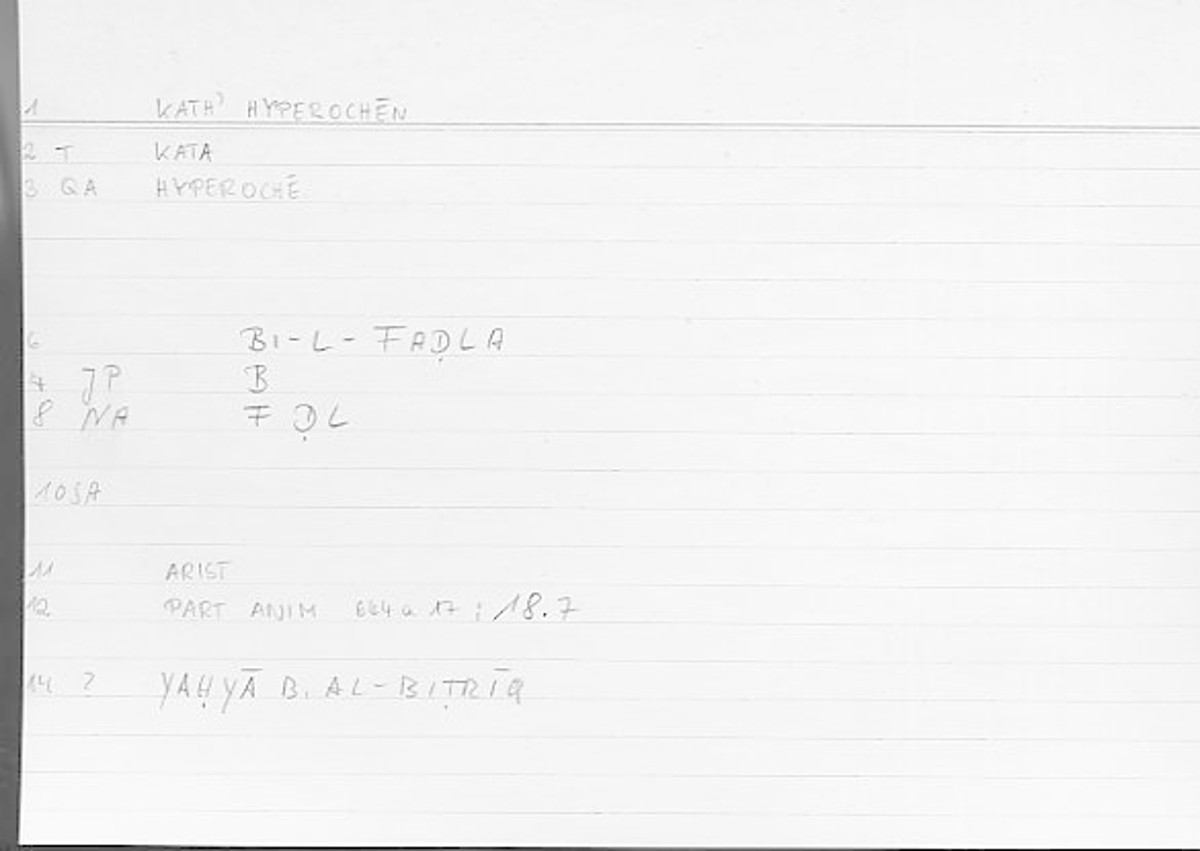 1 KATH' HYPEROCHĒN
2 T KATA
3 QA HYPEROCHĒ
6 BI-L-FAḌLA
7 JP B
8 NA F Ḍ L
10 SA
11 ARIST
12 PART ANIM 644a 17 ; 18.7
14 ? YAḤYĀ B. AL-BIṬRĪQ